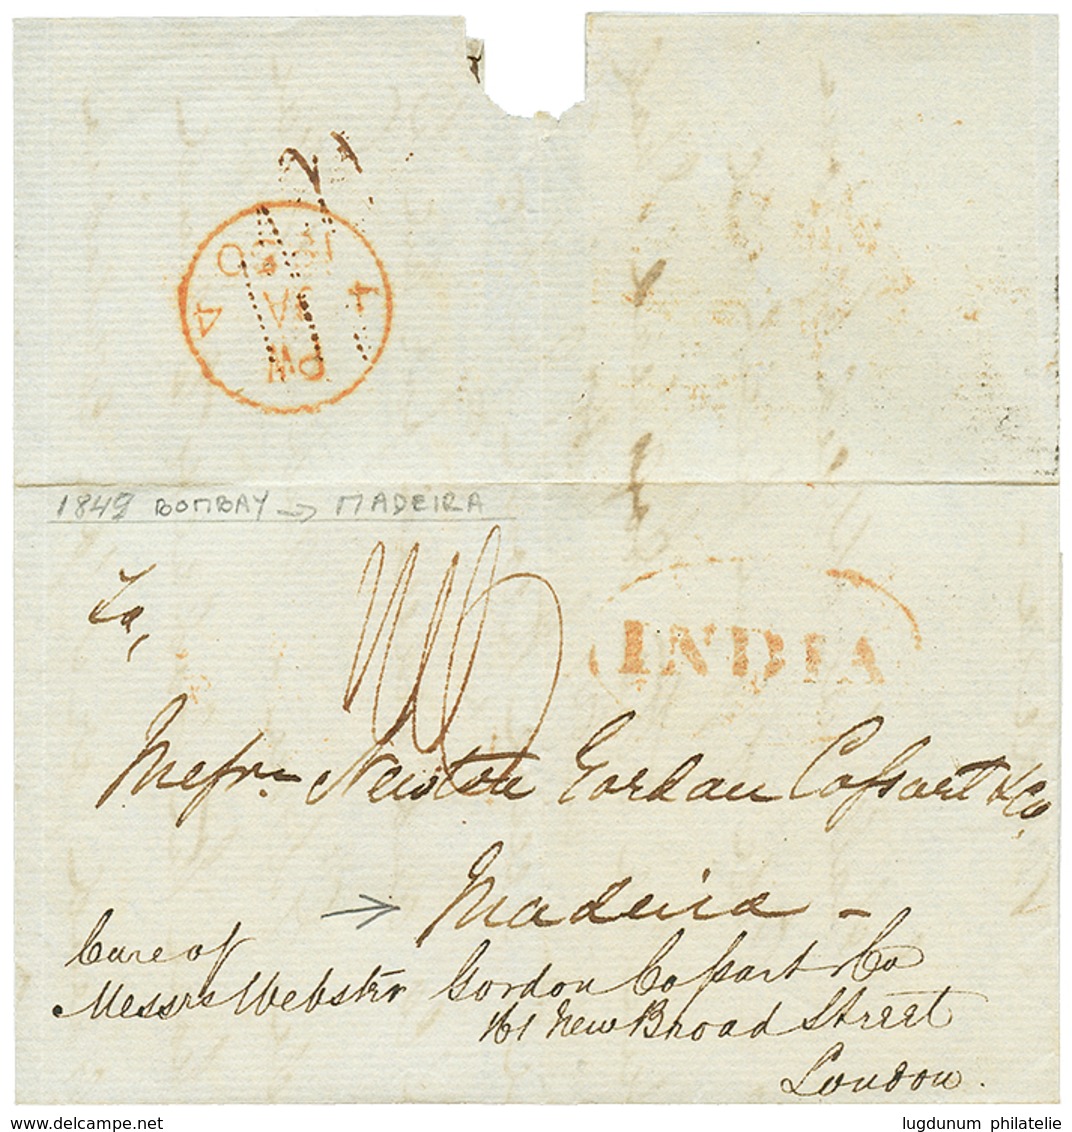 1850
4 JA 4
PM
1849 BOMBAY → MADEIRA
To,
INDIA
Messrs Newton Gordon Cossart & Co
Madeira -
Care of
Messrs Webster Gordon Cossart & Co
16 New Broad Street
London.
delcampe.net
lugdunum philatelie